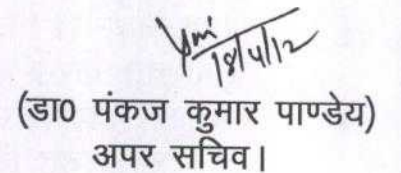 18/4/12
(डा0 पंकज कुमार पाण्डेय)
अपर सचिव।